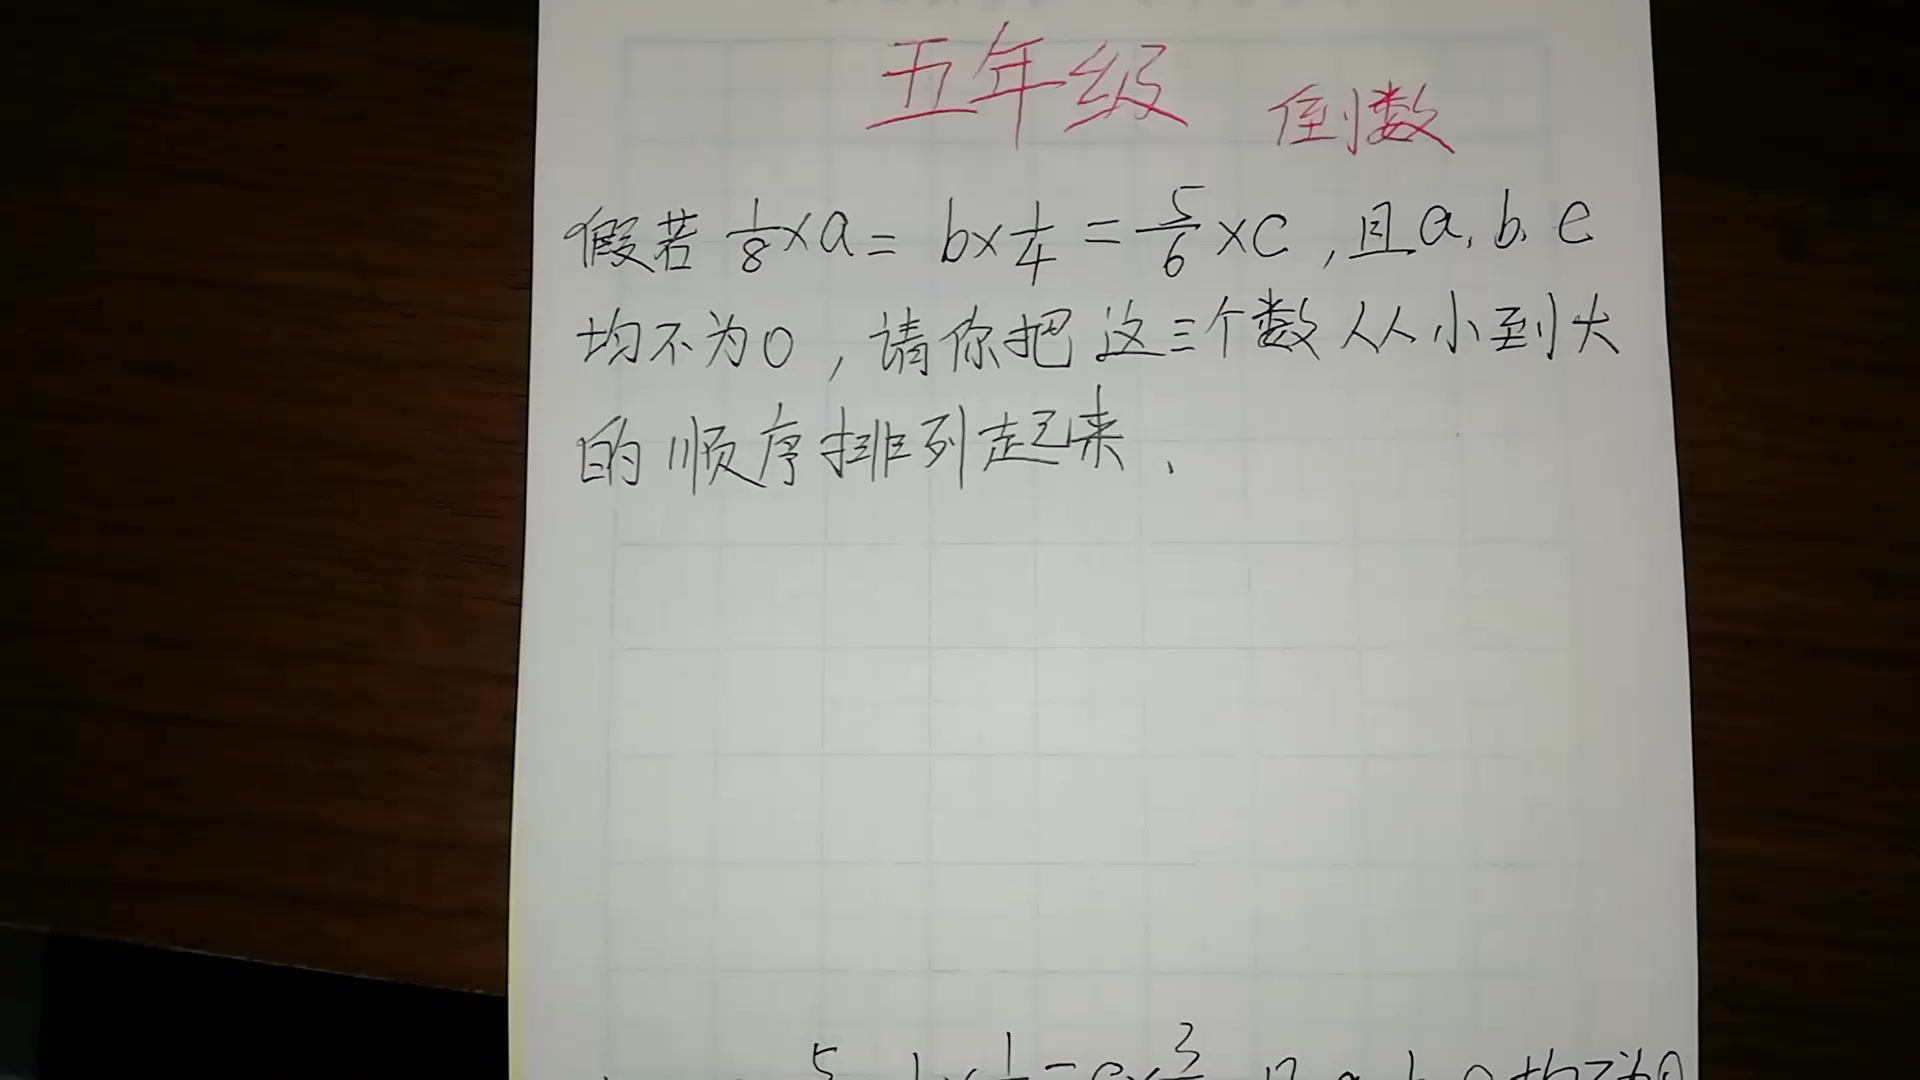 五年级 倒数
假若 1/8×a= b×1/4 = 5/6×c ,且a、b、c
均不为0,请你把这三个数从小到大
的顺序排列起来、